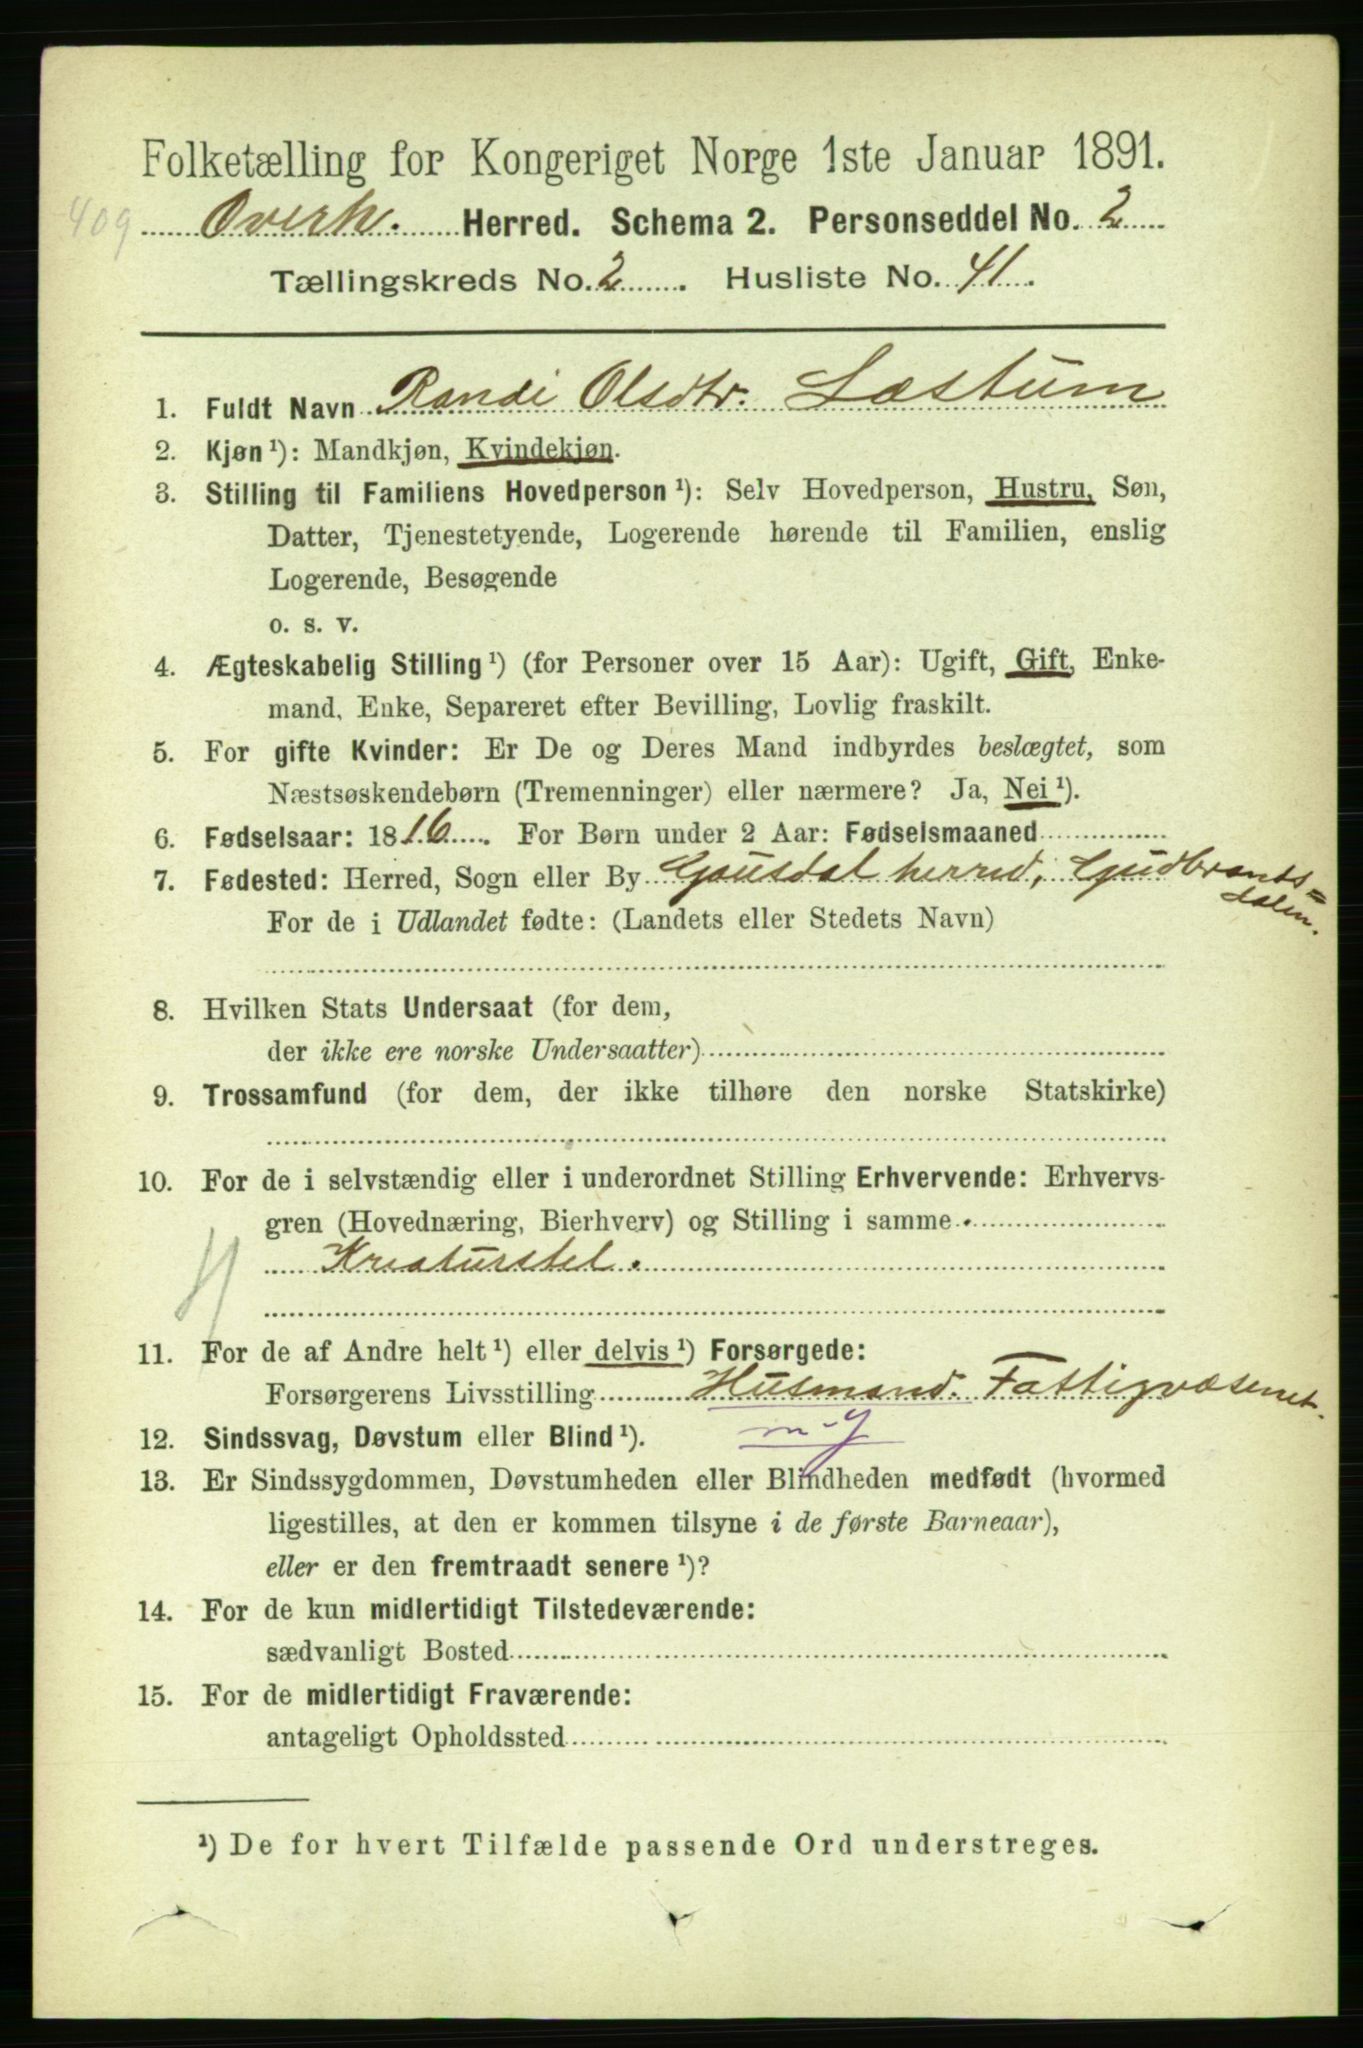 Folketælling for Kongeriget Norge 1ste Januar 1891.
409 Overh. Herred. Schema 2. Personseddel No. 2
Tællingskreds No. 2. Husliste No. 41.
1. Fuldt Navn Randi Olsdtr. Læstum
2. Kjøn ¹): Mandkjøn, Kvindekjøn.
3. Stilling til Familiens Hovedperson ¹): Selv Hovedperson, Hustru, Søn,
Datter, Tjenestetyende, Logerende hørende til Familien, enslig
Logerende, Besøgende
o. s. v.
4. Ægteskabelig Stilling ¹) (for Personer over 15 Aar): Ugift, Gift, Enke-
mand, Enke, Separeret efter Bevilling, Lovlig fraskilt.
5. For gifte Kvinder: Er De og Deres Mand indbyrdes beslægtet, som
Næstsøskendebørn (Tremenninger) eller nærmere? Ja, Nei ¹).
6. Fødselsaar: 1816. For Børn under 2 Aar: Fødselsmaaned
7. Fødested: Herred, Sogn eller By Gausdal herred, Gudbrants=
dalen.
For de i Udlandet fødte: (Landets eller Stedets Navn)
8. Hvilken Stats Undersaat (for dem,
der ikke ere norske Undersaatter)
9. Trossamfund (for dem, der ikke tilhøre den norske Statskirke)
10. For de i selvstændig eller i underordnet Stilling Erhvervende: Erhvervs-
gren (Hovednæring, Bierhverv) og Stilling i samme
Kreaturstel.
11. For de af Andre helt ¹) eller delvis ¹) Forsørgede:
Forsørgerens Livsstilling Husmand. Fattigvæsenet.
12. Sindssvag, Døvstum eller Blind ¹). m-g
13. Er Sindssygdommen, Døvstumheden eller Blindheden medfødt (hvormed
ligestilles, at den er kommen tilsyne i de første Barneaar),
eller er den fremtraadt senere ¹)?
14. For de kun midlertidigt Tilstedeværende:
sædvanligt Bosted
15. For de midlertidigt Fraværende:
antageligt Opholdssted
¹) De for hvert Tilfælde passende Ord understreges.